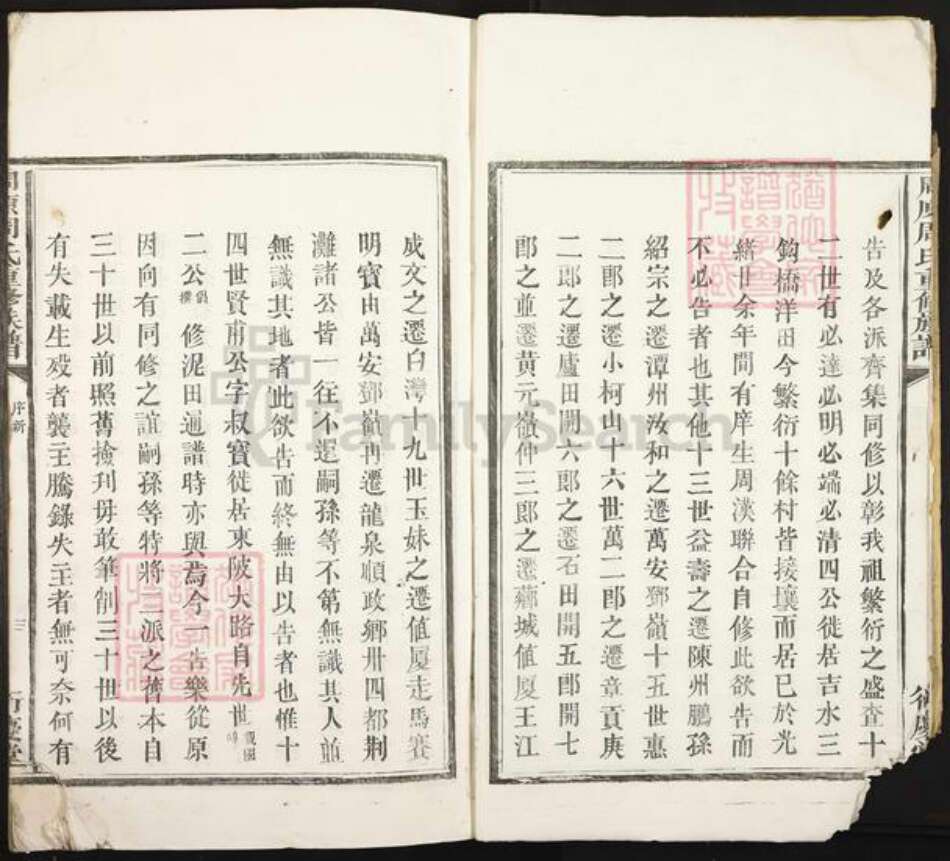 告及各派齊集同修以彰我祖繁衍之盛查十
二世有必達必明必端必清四公徙居吉水三
鈎橋洋田今繁衍十餘村皆接壤而居已於光
緒廿余年間有庠生周漢聯合自修此欲告而
不必告者也其他十三世益壽之遷陳州鵬孫
紹宗之遷潭州汝和之遷萬安鄧嶺十五世惠
二郎之遷小柯山十六世萬二郎之遷章貢庚
二郎之遷廬田開六郎之遷石田開五郎開七
郎之並遷黄元嶺仲三郎之遷城值廈王江
成文之遷白灣十九世玉妹之遷值廈走馬賽
明寶由萬安鄧嶺再遷龍泉順政鄉卅四都荆
灘諸公皆一往不還嗣孫等不第無識其人並
無識其地者此欲告而終無由以告者也惟十
四世賢甫公字叔寶徙居東陂大路自先世
二公修泥田通譜時亦與焉今一告樂從原
因向有同修之誼嗣孫等特將一派之舊本自
三十世以前照舊撿刋毋敢筆削三十世以後
有失載生殁者襲主騰錄失主者無可奈何有
周氏重修族譜
序新
FamilySearch